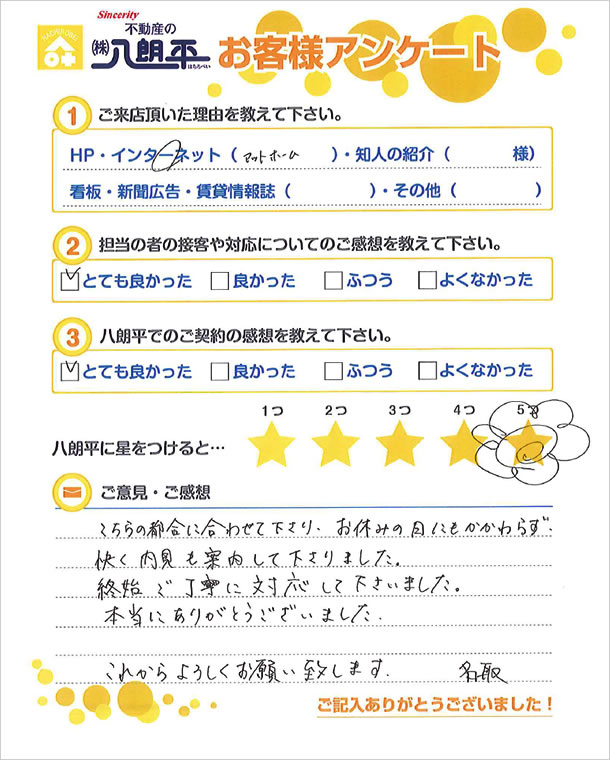 HACHIROBE
Sincerity
不動産の
㈱八朗平
はちろべい
お客様アンケート
1 ご来店頂いた理由を教えて下さい。
HP・インターネット（アットホーム）・知人の紹介（ 様）
看板・新聞広告・賃貸情報誌（ ）・その他（ ）
2 担当の者の接客や対応についてのご感想を教えて下さい。
とても良かった 良かった ふつう よくなかった
3 八朗平でのご契約の感想を教えて下さい。
とても良かった 良かった ふつう よくなかった
1つ 2つ 3つ 4つ 5つ
八朗平に星をつけると…
ご意見・ご感想
こちらの都合に合わせて下さり、お休みの日にもかかわらず、
快く内見も案内して下さりました。
終始ご丁寧に対応して下さいました。
本当にありがとうございました。
これからよろしくお願い致します。 名取
ご記入ありがとうございました！